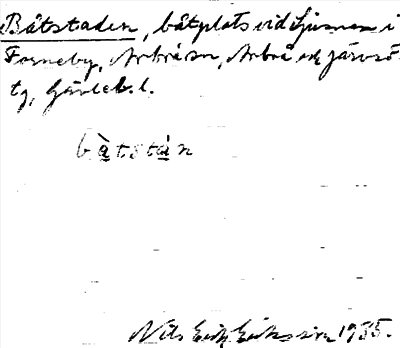 Båtstaden, båtplats vid Ljusnan i
Forneby, Arbråsn, Arbrå ok Järvsö
tg, Gävleb. l.
bàtstán
Nils Erik Eriksson 1935.